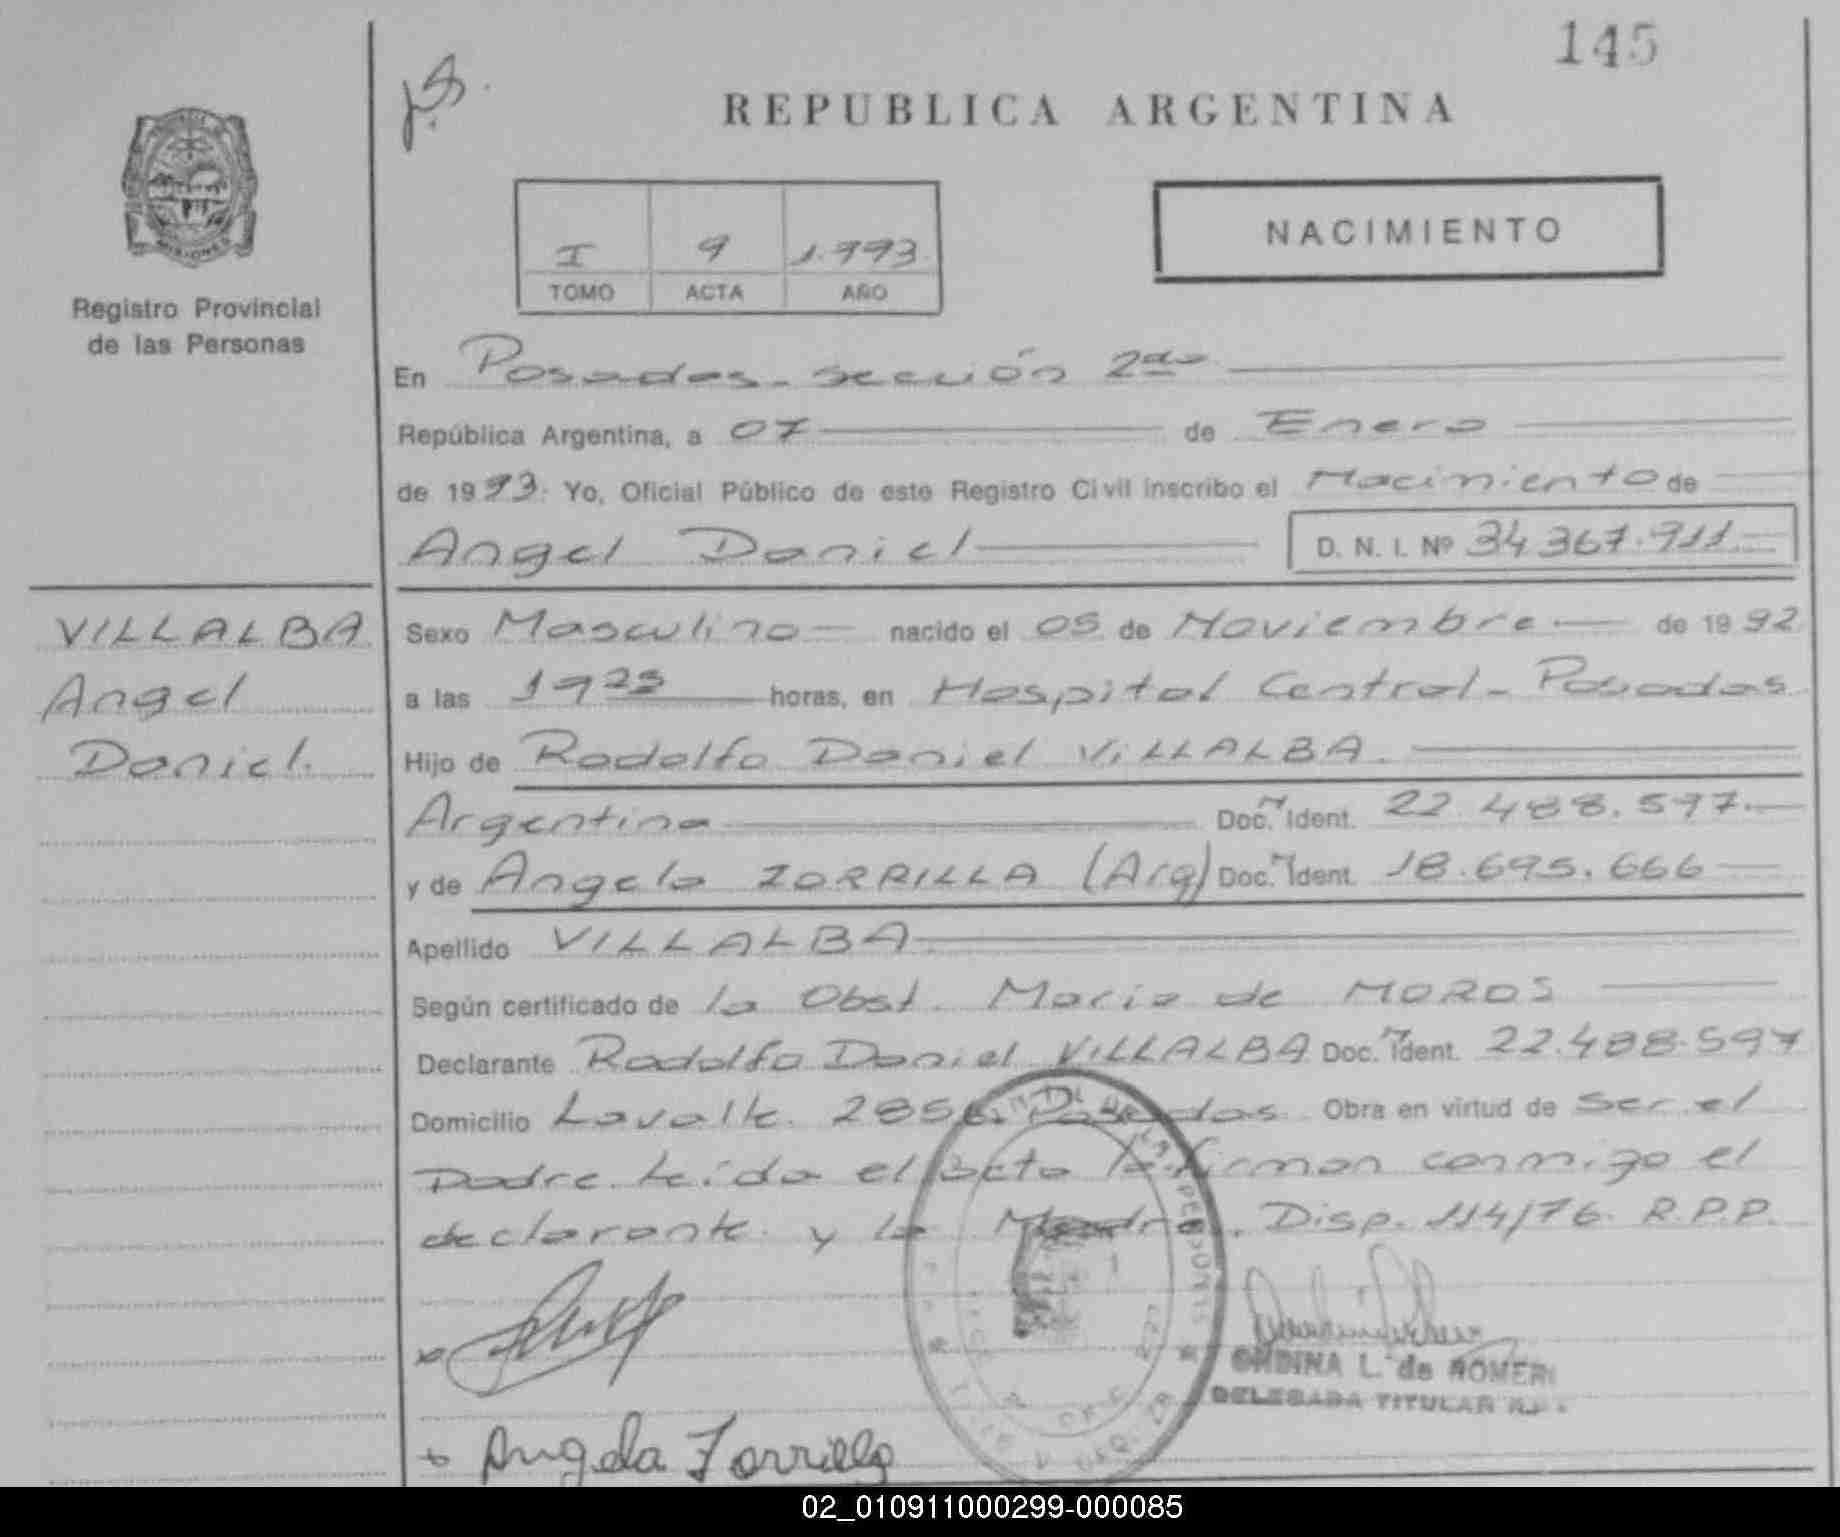 145
REPUBLICA ARGENTINA
NACIMIENTO
I 9 1.993
TOMO ACTA AÑO
Registro Provincial
de las Personas
En Posadas - sección 2da
República Argentina, a 07 de Enero
de 1993. Yo, Oficial Público de este Registro Civil inscribo el Nacimiento de
Angel Daniel D. N. I. Nº 34367.911
VILLALBA
Angel
Daniel.
Sexo Masculino nacido el 05 de Noviembre de 1992
a las 19 23 horas, en Hospital Central - Posadas
Hijo de Rodolfo Daniel VILLALBA.
Argentina Doc. Ident. 22.488.597
y de Angela ZORRILLA (Arg) Doc. Ident. 18.695.666
Apellido VILLALBA
Según certificado de la Obst. Maria de MOROS
Declarante Rodolfo Daniel VILLALBA Doc. Ident. 22.488.597
Domicilio Lavalle. 2856. Posadas Obra en virtud de Ser el
Padre. Leída el acta la firman conmigo el
declarante y la Madre. Disp. 114/76. R.P.P.
ONDINA L. de ROMER
DELEGADA TITULAR
Angela Zorrilla
02_010911000299-000085